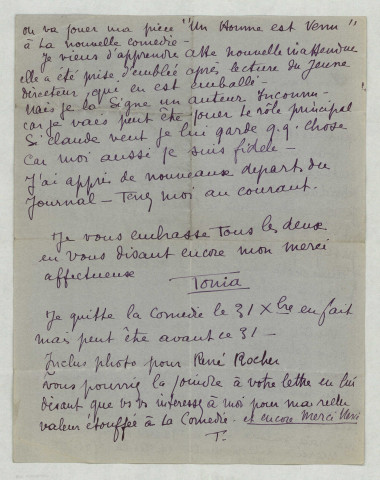 on va jouer ma pièce "Un Homme est Venu"
à la nouvelle comédie –
Je viens d'apprendre cette nouvelle inattendue
elle a été prise d'emblée après lecture du jeune
directeur, qui en est emballé –
Mais je la signe un auteur Inconnu –
car je vais peut être jouer le rôle principal
Si Claude veut je lui garde q.q. chose
car moi aussi je suis fidèle –
J'ai appris de nouveaux départs du
Journal – Tenez moi au courant.
Je vous embrasse tous les deux
en vous disant encore mon merci
affectueux
Tonia
Je quitte la Comédie le 31 Xbre en fait
mais peut être avant ce 31 –
Inclus photo pour René Rocher
Vous pourriez la joindre à votre lettre en lui
disant que vs vs interessez à moi pour ma réelle
valeur étouffée à la Comédie. et encore Merci
T.